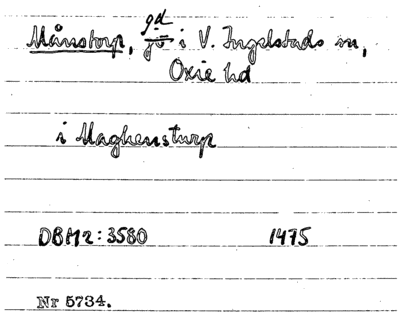 gd
Månstorp, jo i V. Ingelstads sn,
Oxie hd
i Maghenstorp
DBM2:3580 1475
Nr 5734.